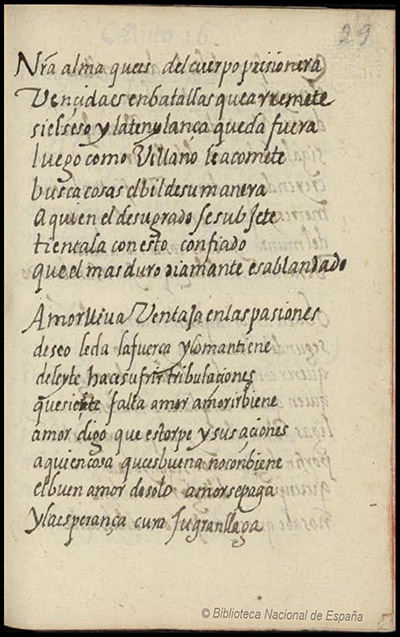 29
Nr̃a alma ques del cuerpo prisionera
Vençida es en batallas que arremete
si el seso y la lança queda fuera
luego como Villano le acomete
busca cosas el bil de su manera
a quien el desuprado se subjete
tientala con esto confiado
que el mas duro diamante es ablandado
Amor lleva Ventaja en las pasiones
deseo le da la fuerça y lo mantiene
deleyte hace sufrir tribulaciones
que si este falta amor a morir biene
amor digo que es torpe y sus aciones
a quien cosa ques buena no conbiene
el buen amor de solo amor se paga
y la esperança cura su gran llaga
© Biblioteca Nacional de España